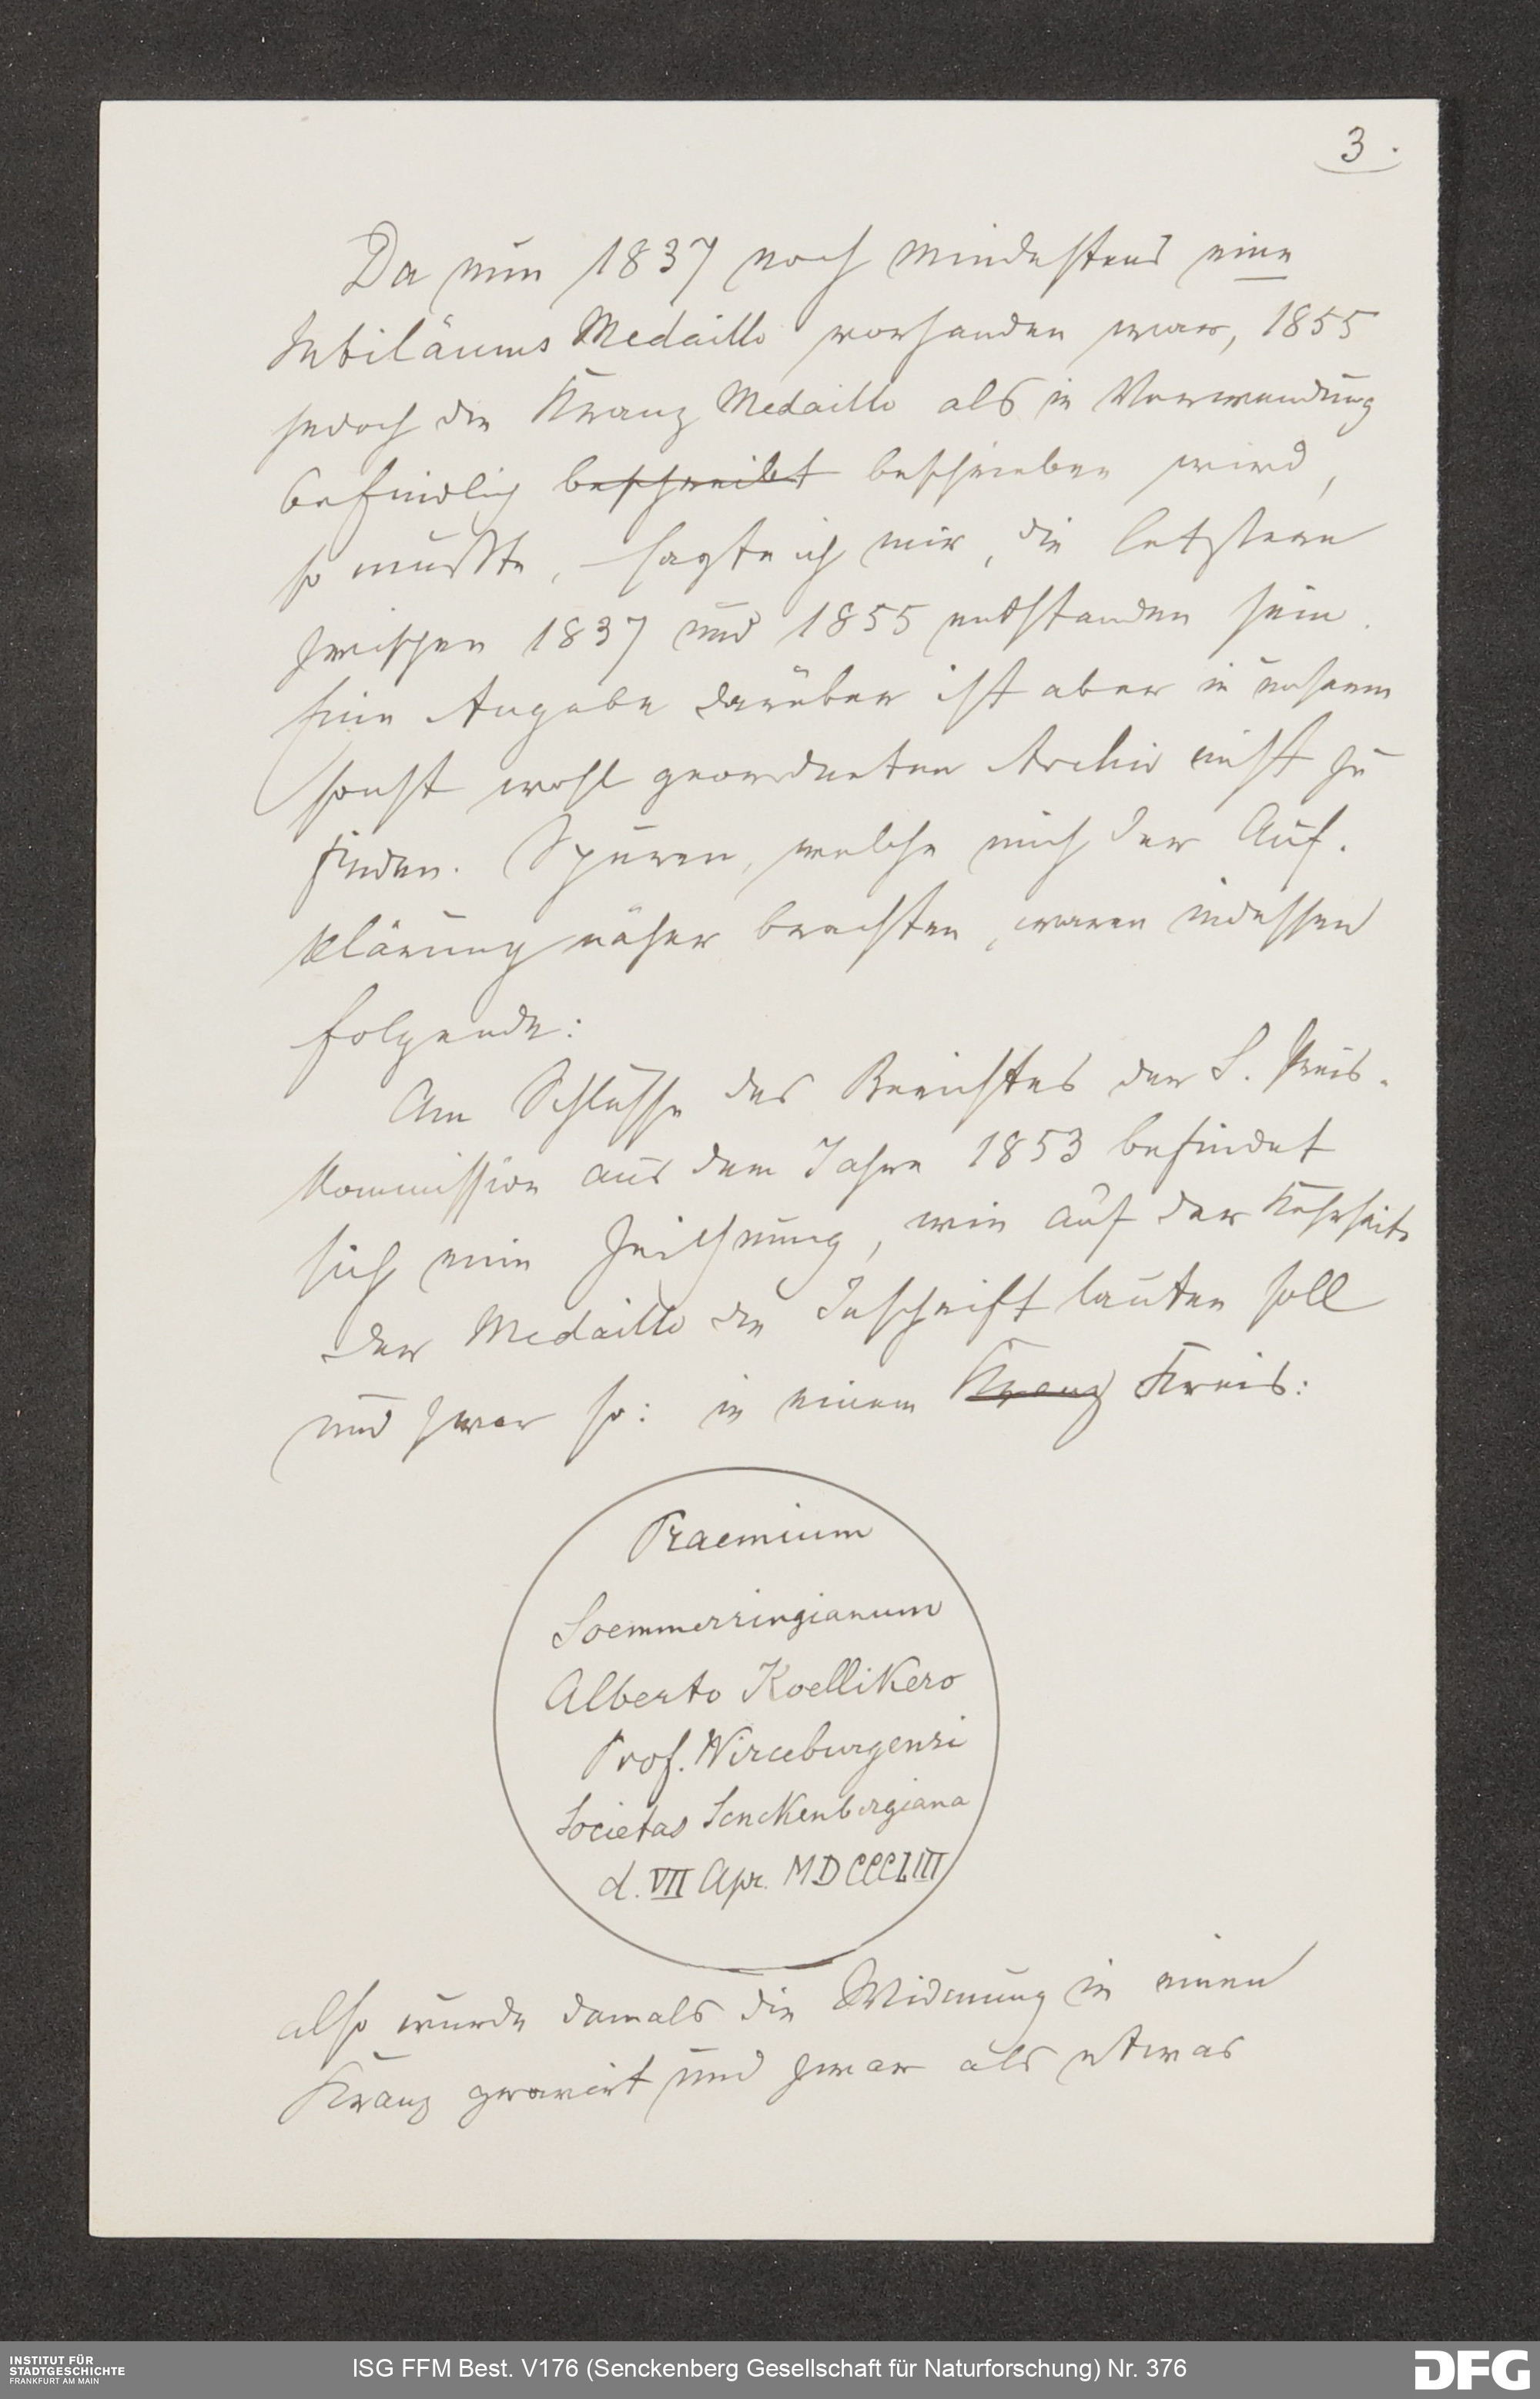 3.
Da nun 1837 noch mindestens eine
Jubiläums Medaille vorhanden war, 1855
jedoch die Kranz Medaille als in Verwendung
befindlich beschreibt beschrieben wird,
so mußte, sagte ich mir, die letztere
zwischen 1837 und 1855 entstanden sein.
Eine Angabe darüber ist aber in unserem
sonst wohl geordneten Archiv nicht zu
finden. Spuren, welche mich der Auf-
klärung näher brachten, waren indessen
folgende:
Am Schlusse des Berichtes der S. Preis-
kommission aus dem Jahre 1853 befindet
sich eine Zeichnung, wie auf der Kehrseite
der Medaille die Inschrift lauten soll
und zwar so: in einem Kranz Kreis:
Praemium
Soemmerringianum
Alberto Koellikero
Prof. Wirceburgensi
Societas Senckenbergiana
d. VII Apr. MDCCCLIII
also wurde damals die Widmung in einen
Kranz gravirt und zwar als etwas
INSTITUT FÜR
STADTGESCHICHTE
FRANKFURT AM MAIN
ISG FFM Best. V176 (Senckenberg Gesellschaft für Naturforschung) Nr. 376
DFG